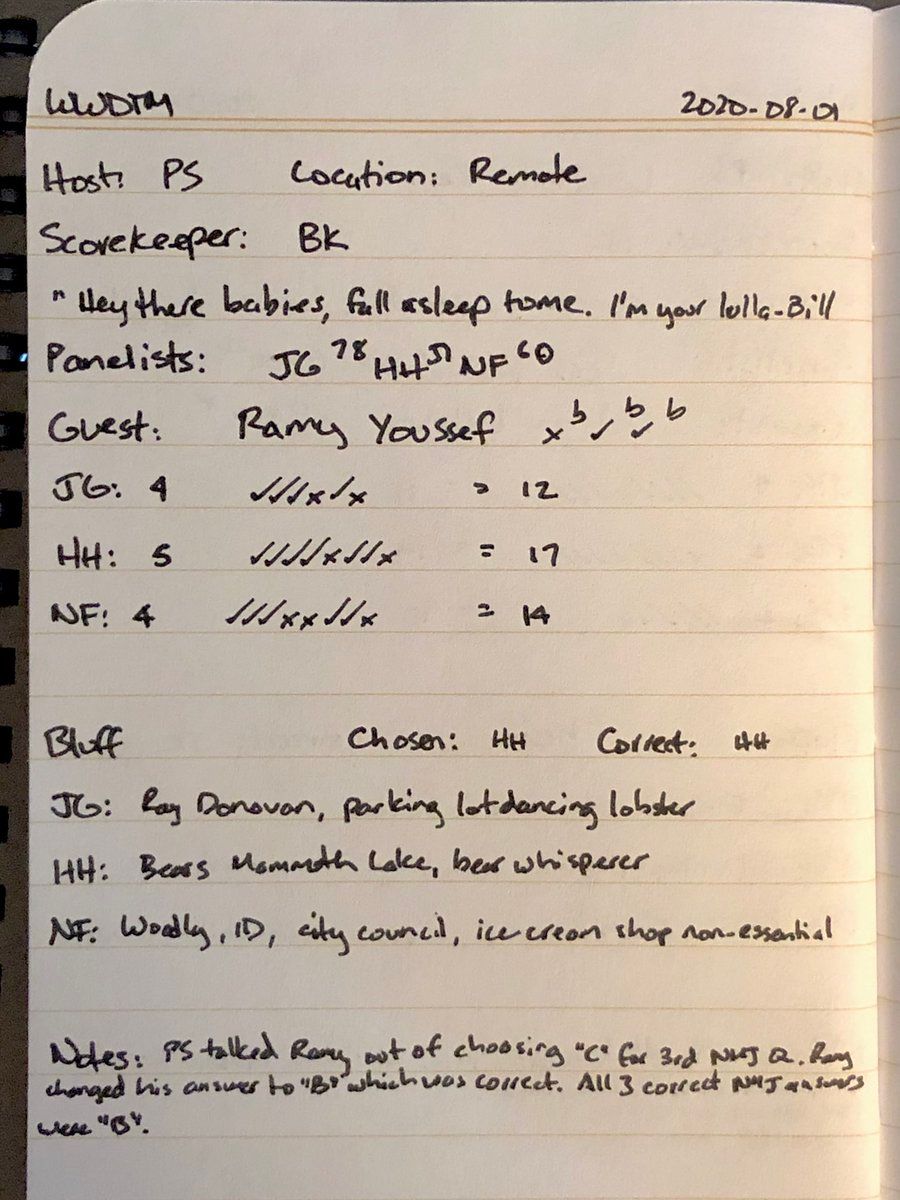 WWDTM 2020-08-01
Host: PS Location: Remote
Scorekeeper: BK
"Hey there babies, fall asleep to me. I'm your lulla-Bill
Panelists: JG 78 HH 51 NF 60
Guest: Ramy Youssef x b ✓ b ✓ b
JG: 4 ✓✓✓x✓x = 12
HH: 5 ✓✓✓✓x✓✓x = 17
NF: 4 ✓✓✓xx✓✓x = 14
Bluff Chosen: HH Correct: HH
JG: Ray Donovan, parking lot dancing lobster
HH: Bears Mammoth Lake, bear whisperer
NF: , ID, city council, ice cream shop non-essential
Notes: PS talked Ramy out of choosing "C" for 3rd NMJ Q. Ramy
changed his answer to "B" which was correct. All 3 correct NMJ answers
were "B".